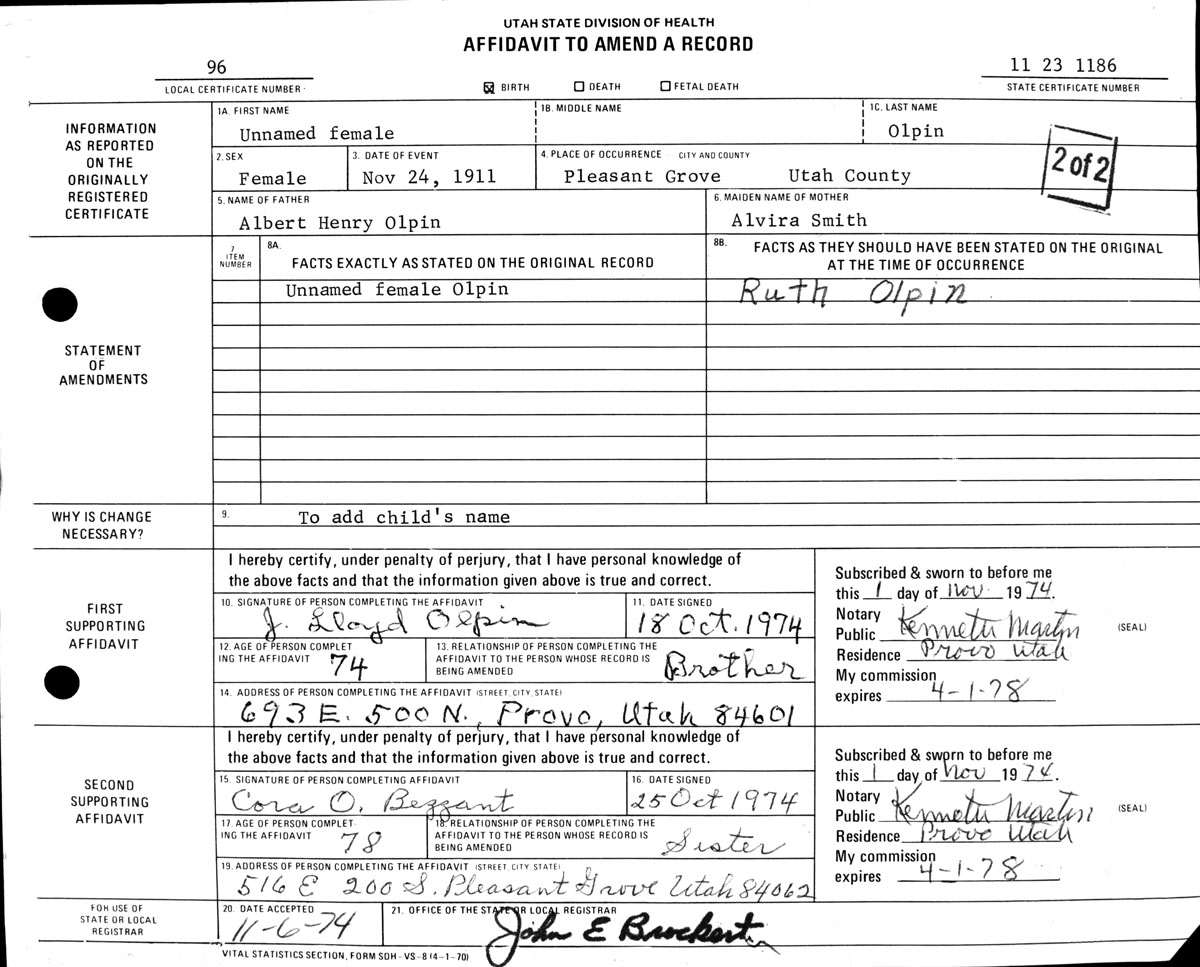 UTAH STATE DIVISION OF HEALTH
AFFIDAVIT TO AMEND A RECORD
96
LOCAL CERTIFICATE NUMBER
☒ BIRTH ☐ DEATH ☐ FETAL DEATH
11 23 1186
STATE CERTIFICATE NUMBER
INFORMATION
AS REPORTED
ON THE
ORIGINALLY
REGISTERED
CERTIFICATE
1A. FIRST NAME
Unnamed female
1B. MIDDLE NAME
1C. LAST NAME
Olpin
2 of 2
2. SEX
Female
3. DATE OF EVENT
Nov 24, 1911
4. PLACE OF OCCURRENCE CITY AND COUNTY
Pleasant Grove Utah County
5. NAME OF FATHER
Albert Henry Olpin
6. MAIDEN NAME OF MOTHER
Alvira Smith
STATEMENT
OF
AMENDMENTS
7
ITEM
NUMBER
8A.
FACTS EXACTLY AS STATED ON THE ORIGINAL RECORD
8B. FACTS AS THEY SHOULD HAVE BEEN STATED ON THE ORIGINAL
AT THE TIME OF OCCURRENCE
Unnamed female Olpin
Ruth Olpin
WHY IS CHANGE
NECESSARY?
9. To add child's name
FIRST
SUPPORTING
AFFIDAVIT
I hereby certify, under penalty of perjury, that I have personal knowledge of
the above facts and that the information given above is true and correct.
10. SIGNATURE OF PERSON COMPLETING THE AFFIDAVIT
J. Lloyd Olpin
11. DATE SIGNED
18 Oct. 1974
12. AGE OF PERSON COMPLET
ING THE AFFIDAVIT 74
13. RELATIONSHIP OF PERSON COMPLETING THE
AFFIDAVIT TO THE PERSON WHOSE RECORD IS
BEING AMENDED Brother
14. ADDRESS OF PERSON COMPLETING THE AFFIDAVIT (STREET, CITY, STATE)
693 E. 500 N., Provo, Utah 84601
Subscribed & sworn to before me
this 1 day of Nov. 1974.
Notary
Public Kenneth Martin (SEAL)
Residence Provo Utah
My commission
expires 4-1-78
SECOND
SUPPORTING
AFFIDAVIT
I hereby certify, under penalty of perjury, that I have personal knowledge of
the above facts and that the information given above is true and correct.
15. SIGNATURE OF PERSON COMPLETING AFFIDAVIT
Cora O. Bezzant
16. DATE SIGNED
25 Oct 1974
17. AGE OF PERSON COMPLET
ING THE AFFIDAVIT 78
18. RELATIONSHIP OF PERSON COMPLETING THE
AFFIDAVIT TO THE PERSON WHOSE RECORD IS
BEING AMENDED Sister
19. ADDRESS OF PERSON COMPLETING THE AFFIDAVIT (STREET, CITY, STATE)
516 E 200 S. Pleasant Grove Utah 84062
Subscribed & sworn to before me
this 1 day of Nov 1974.
Notary
Public Kenneth Martin (SEAL)
Residence Provo Utah
My commission
expires 4-1-78
FOR USE OF
STATE OR LOCAL
REGISTRAR
20. DATE ACCEPTED
11-6-74
21. OFFICE OF THE STATE OR LOCAL REGISTRAR
John E Brockert
VITAL STATISTICS SECTION, FORM SDH-VS-8 (4-1-70)